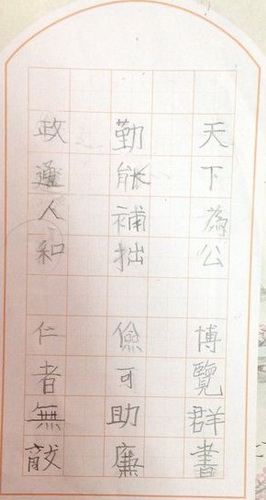 天下為公 博覽群書
勤能補拙 儉可助廉
政通人和 仁者無敵